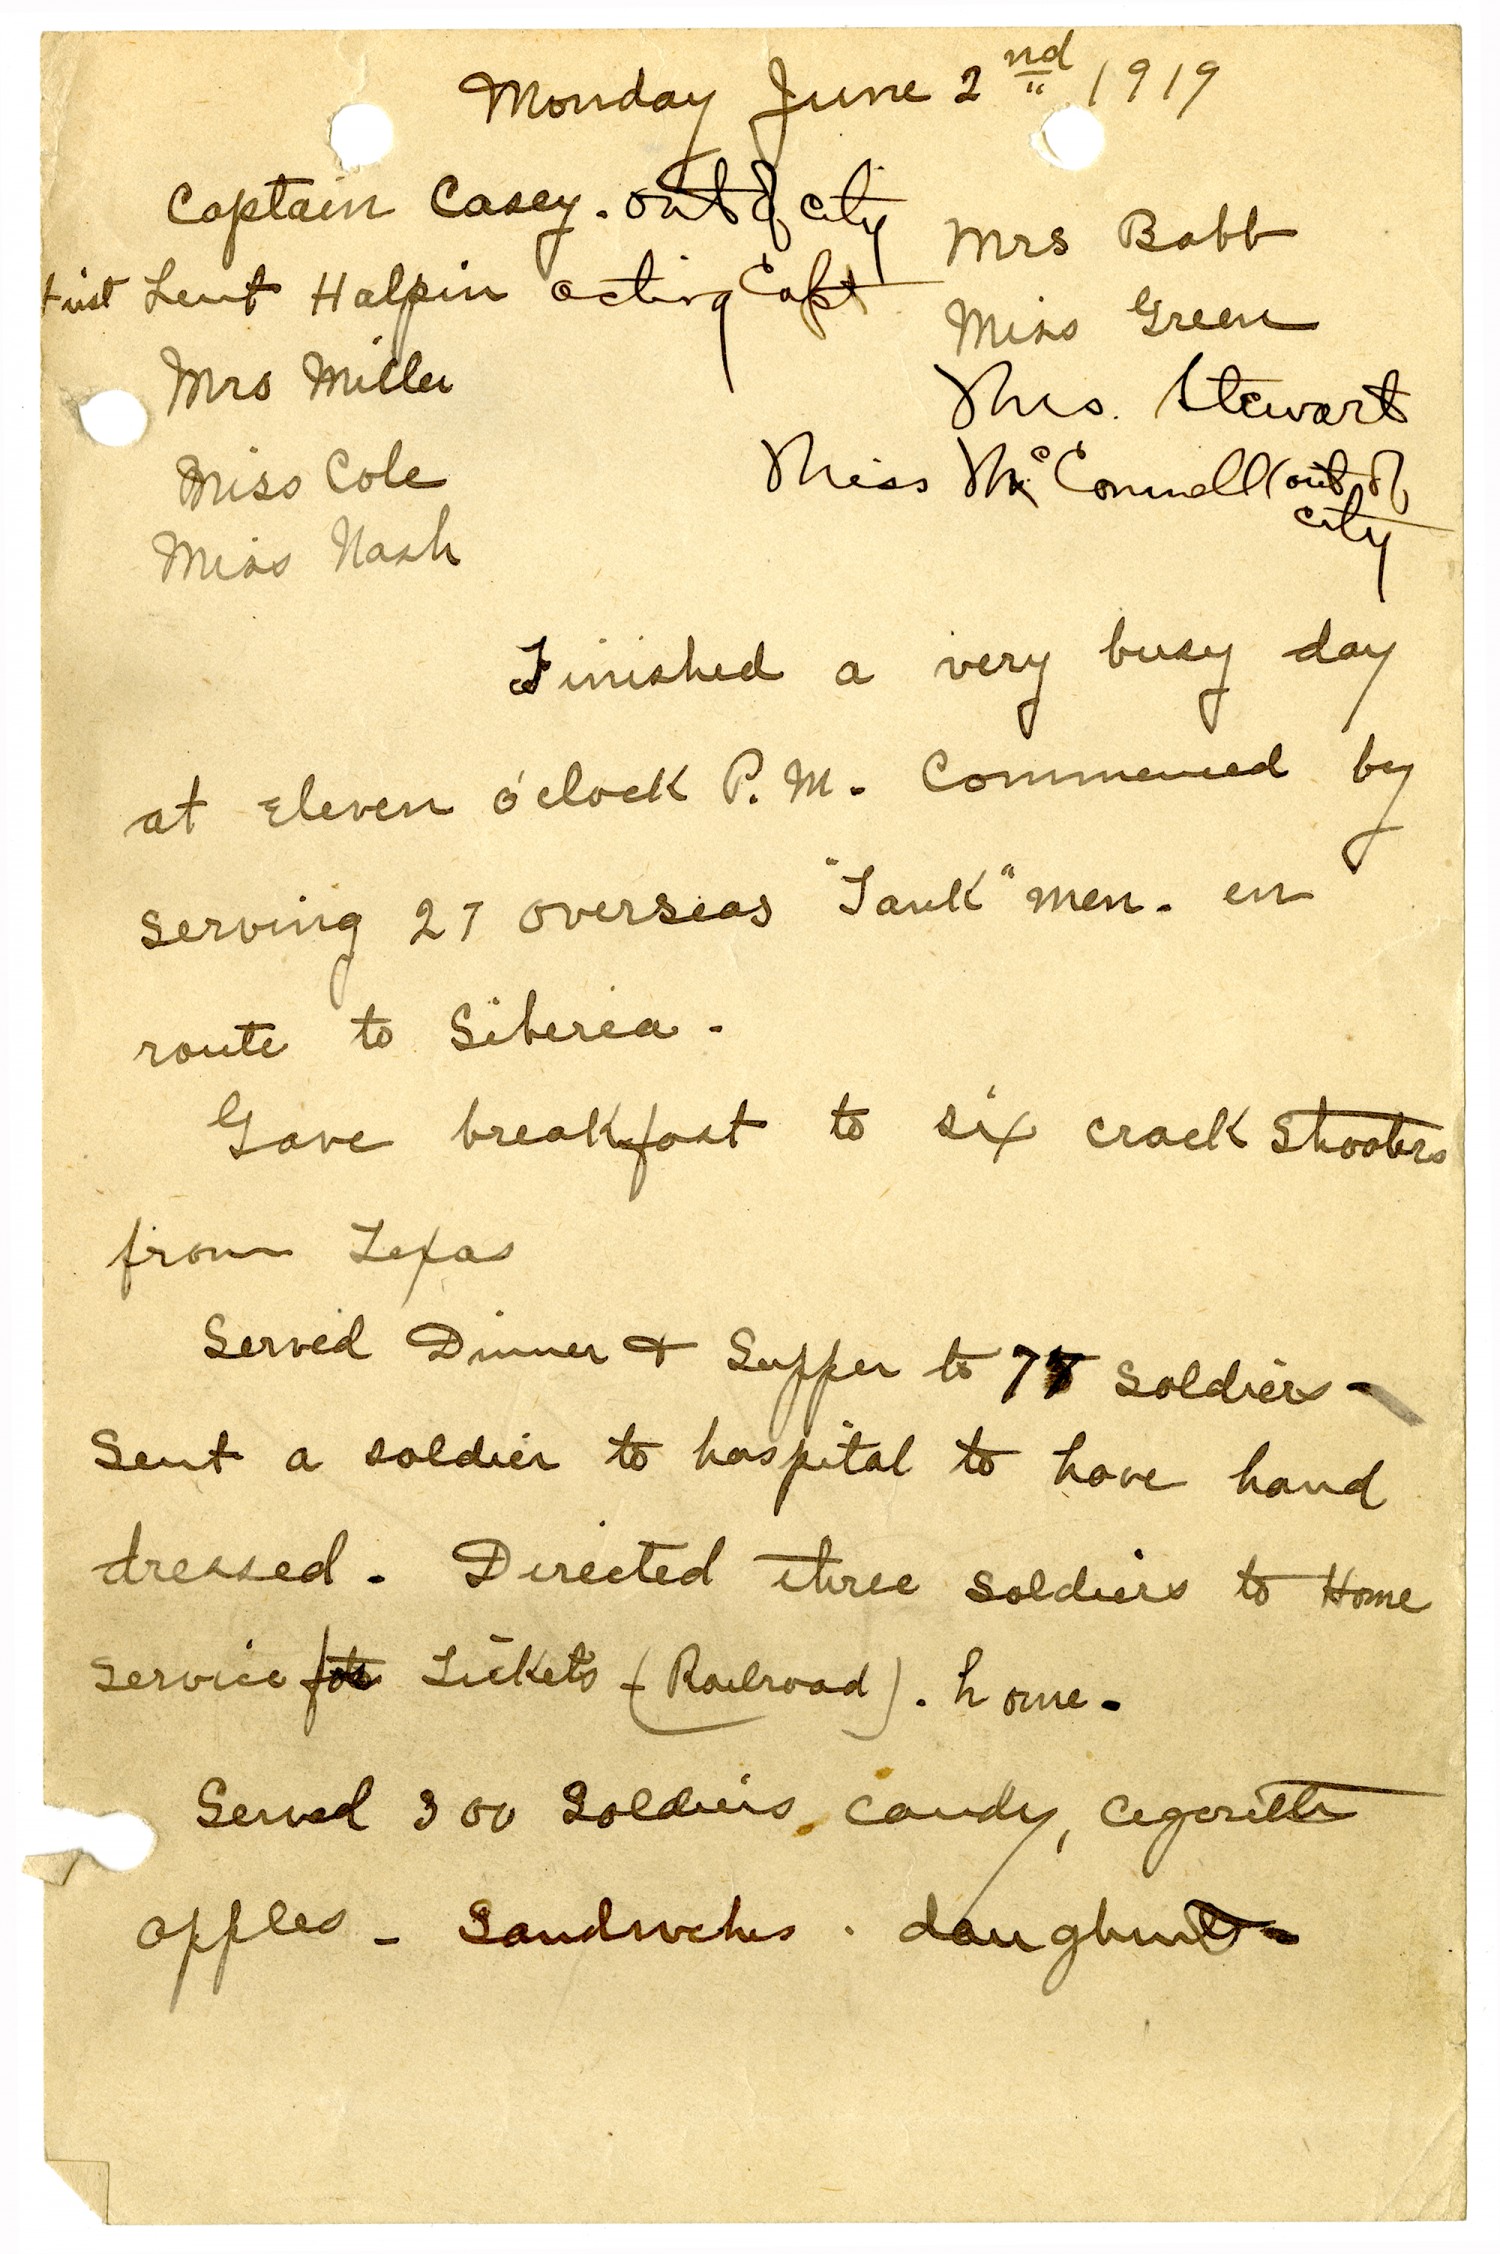 Monday June 2nd 1919
Captain Casey. out of city
First Leut Halpin acting Capt
Mrs Miller
Miss Cole
Miss Nash
Mrs Babb
Miss Green
Mrs. Stewart
Miss McConnell (out of
city
Finished a very busy day
at Eleven o'clock P.M. Commenced by
serving 27 overseas "Tank" men. en
route to Siberia.
Gave breakfast to six crack shooters
from Texas
Served Dinner & Supper to soldiers -
Sent a soldier to hospital to have hand
dressed. Directed three soldiers to Home
service for Tickets (Railroad). home.
Served 300 Soldiers, candy, cigarette
apples - Sandwiches.